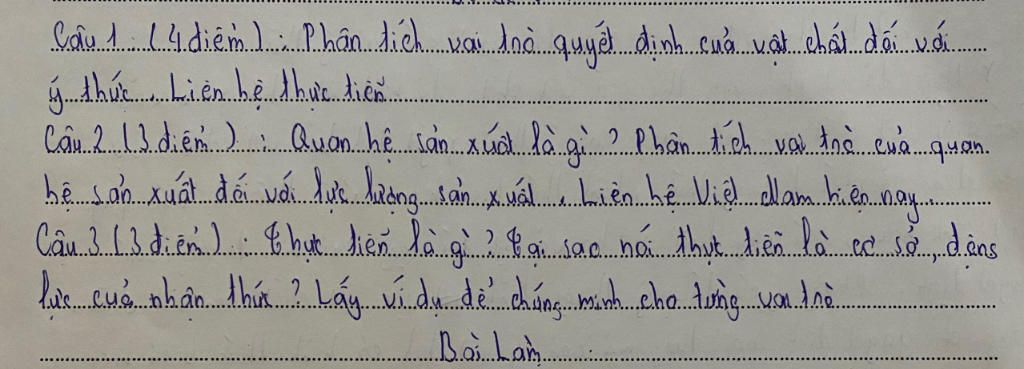 Câu 1 (4 điểm): Phân tích vai trò quyết định của vật chất đối với
ý thức. Liên hệ thực tiễn
Câu 2 (3 điểm): Quan hệ sản xuất là gì? Phân tích vai trò của quan
hệ sản xuất đối với lực lượng sản xuất. Liên hệ Việt Nam hiện nay.
Câu 3 (3 điểm): Thực tiễn là gì? Tại sao nói thực tiễn là cơ sở, động
lực của nhận thức? Lấy ví dụ để chứng minh cho từng vai trò
Bài Làm: